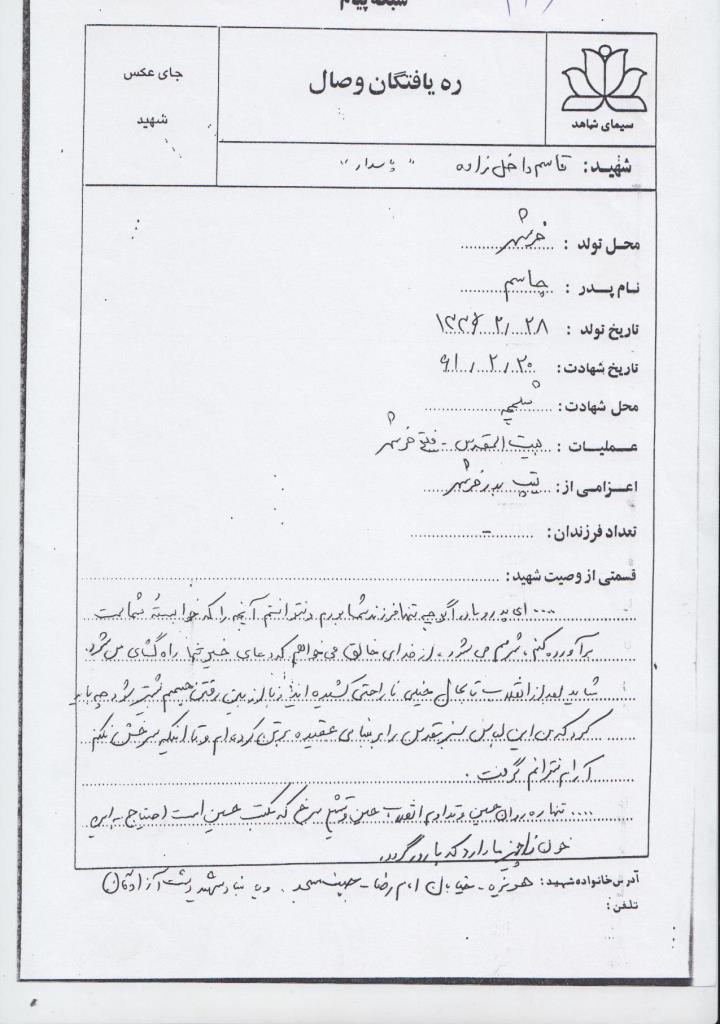 شبکه پیام
جای عکس
شهید
ره یافتگان وصال
سیمای شاهد
شهید: قاسم داخل زاده "پاسدار"
محل تولد : خرمشهر
نام پدر : جاسم
تاریخ تولد : ۱۳۳۶/۲/۲۸
تاریخ شهادت: ۶۱/۲/۲۰
محل شهادت: شلمچه
عملیات : بیت المقدس - فتح خرمشهر
اعزامی از: تیپ بدر خرمشهر
تعداد فرزندان: -
قسمتی از وصیت شهید:
.... ای پدر و مادر اگر چه تنها فرزند شما بودم و نتوانستم آنچه را که خواسته شماست
برآورده کنم، شرمم می شود، از خدای خالق می خواهم که دعای خیر شما راه گشای من شود.
شاید بعد از انقلاب تا بحال خیلی ناراحتی کشیده اید از بین رفتن جسمم شود چه باید
کرد که من این لباس سبز مقدس را بر مبنای عقیده بر تن کرده ام و تا اینکه سرخش نکنم
آرام نتوانم گرفت .
.... تنها ره روان حسین و تداوم انقلاب حسین و تشیع سرخ که مکتب حسین است احتیاج به این
خون ما دارد که بارور گردد.
آدرس خانواده شهید: هویزه - خیابان امام رضا - جنب مسجد . و یا بنیاد شهید دشت آزادگان
تلفن: